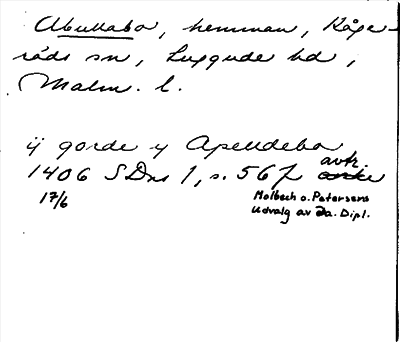 Abullabo, hemman, Kåge-
röds sn, Luggude hd,
Malm. l.
ij gorde y Apelldebo
1406 SDns 1, s. 567 avtr.
17/6 Molbech o. Petersens
Udvalg av Da. Dipl.